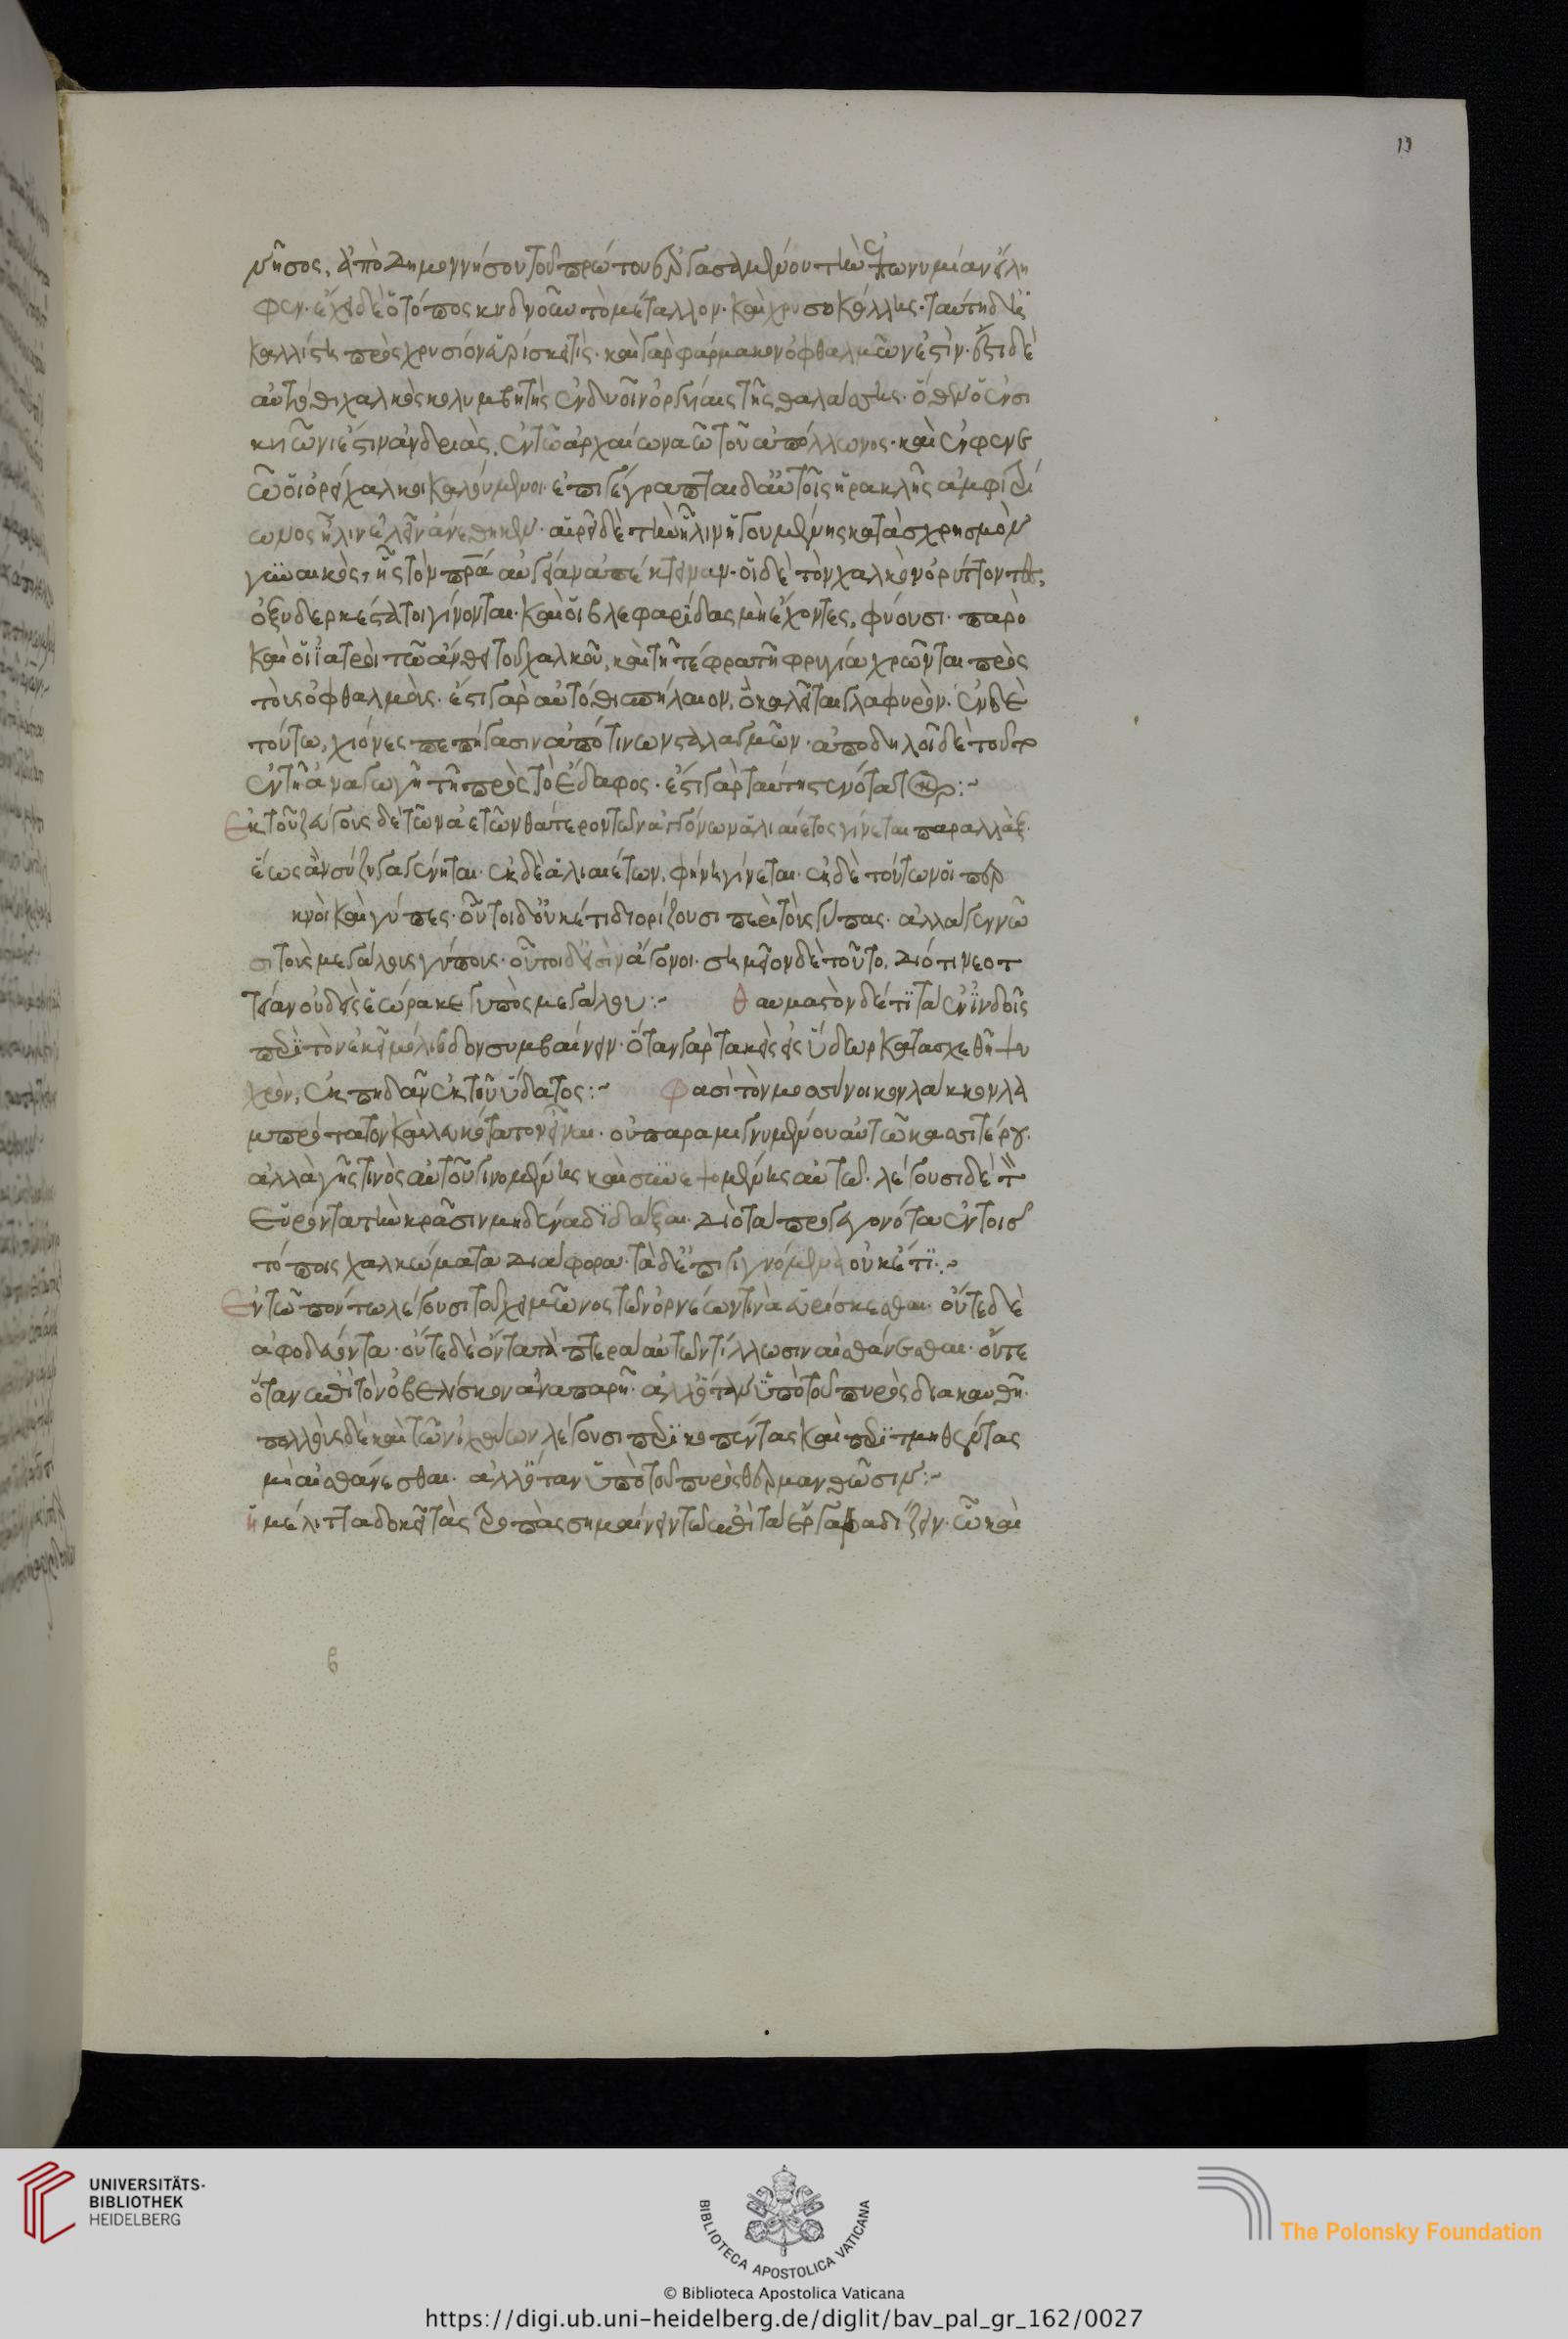 νῆσος. ἀπὸ Δημοννήσου τοῦ πρώτου ἐργασαμένου τὴν ἐπωνυμίαν εἴλη
φεν. ἔχει δὲ ὁ τόπος κυανοῦ τὸ μέταλλον. καὶ χρυσοκόλλης. ταύτη δ' ἡ
καλλίστη πρὸς χρυσίον εὑρίσκει τις. καὶ γὰρ φάρμακον ὀφθαλμῶν ἐστὶν. ἔστι δὲ
αὐτόθι χαλκὸς κολυμβητὴς ἐν δυοῖν ὀργυίαις τῆς θαλάσσης. ὅθεν ὁ ἐν σι
κυῶνι ἐστιν ἀνδριὰς. ἐν τῶ ἀρχαίω ναῶ τοῦ ἀπόλλωνος. καὶ ἐν φενε
ῶ οἱ ὀρείχαλκοι καλούμενοι. ἐπιγέγραπται δ' αὐτοῖς ἡρακλῆς ἀμφιτρύ
ωνος ἦλιν ἑλὼν ἀνέθηκεν. αἱρεῖ δὲ τὴν ἦλιν ἡγουμένης κατὰ χρησμὸν
γυναικὸς, ἧς τὸν πρα αὐγείαν ἀπέκτειναν. οἱ δὲ τὸν χαλκὸν ὀρύττοντες,
ὀξυδερκέστατοι γίνονται. καὶ οἱ βλεφαρίδας μὴ ἔχοντες, φύουσι. παρὸ
καὶ οἱ ἰατροὶ τῶ ἄνθει τοῦ χαλκοῦ, καὶ τῆ τέφρα τῆ φρυγία χρῶνται πρὸς
τοὺς ὀφθαλμοὺς. ἔστι γὰρ αὐτόθι σπήλαιον, ὃ καλεῖται γλαφυρὸν. ἐν δὲ
τούτω, χιόνες πεπήγασιν ἀπό τινων σταλαγμῶν. ἀποδηλοῖ δὲ τοῦτο
ἐν τῆ ἀναγωγῆ τῆ πρὸς τὸ ἔδαφος. ἐστὶ γὰρ ταύτη στενότατ
Ἐκ τοῦ ζεύγους δὲ τῶν ἀετῶν θάτερον τῶν ἐγγόνων ἁλιαίετος γίνεται παραλλὰξ.
ἕως ἂν σύζυγα γένηται. ἐκ δὲ ἁλιαιέτων, φήνη γίνεται. ἐκ δὲ τούτων οἱ περ
κνοὶ καὶ γύπες. οὗτοι δ' οὐκέτι διορίζουσι περὶ τοὺς γύπας. ἀλλὰ γεννῶ
σι τοὺς μεγάλους γύπους. οὗτοι δ' εἰσὶν ἄγονοι. σημεῖον δὲ τοῦτο, διότι νεοτ
τειὰν οὐδεὶς ἑώρακε γυπὸς μεγάλου :~ Θαυμαστὸν δέ τι τὰ ἐν ἰνδοῖς
περὶ τὸν ἐκεῖ μόλιβδον συμβαίνειν. ὅταν γὰρ τακεὶς εἰς ὕδωρ κατασχεθῆ ψυ
χρὸν, ἐκπηδᾶν ἐκ τοῦ ὕδατος :~ Φασὶ τὸν μοσσύνοικον λακκον λα
μπρότατον καὶ λευκότατον εἶναι. οὐ παραμιγνυμένου αὐτῶ κασσιτέρου.
ἀλλὰ γῆς τινὸς αὐτοῦ γινομένης καὶ συνεψομένης αὐτῶ. λέγουσι δὲ τ
εὑρόντα τὴν κρᾶσιν μηδένα διδάξαι. Διὸ τὰ προγεγονότα ἐν τοῖς
τόποις χαλκώματα διάφορα. τὰ δ' ἐπιγιγνόμενα οὐκέτι :~
Ἐν τῶ πόντω λέγουσι τοῦ χειμῶνος τῶν ὀρνέων τινὰ εὑρίσκεσθαι. οὔτε δὲ
ἀφοδεύοντα. οὔτε δὲ ὄντα τὰ πτερὰ αὐτῶν τίλλωσιν αἰσθάνεσθαι. οὔτε
ὅταν ἐπὶ τὸν ὀβελίσκον ἀναπαρῆ. ἀλλ' ὅταν ὑπὸ τοῦ πυρὸς διακαυθῆ.
πολλοὺς δὲ καὶ τῶν ἰχθύων λέγουσι περικοπέντας καὶ περιτμηθέντας
μὴ αἰσθάνεσθαι. ἀλλ' ὅταν ὑπὸ τοῦ πυρὸς θερμανθῶσιν :~
ἡ μέλιττα δοκεῖ τὰς τροπὰς σημαίνειν τῶ ἐπὶ τὰ ἔργα βαδίζειν. ὧ καὶ
β
UNIVERSITÄTS-
BIBLIOTHEK
HEIDELBERG
BIBLIOTECA APOSTOLICA VATICANA
The Polonsky Foundation
© Biblioteca Apostolica Vaticana
https://digi.ub.uni-heidelberg.de/diglit/bav_pal_gr_162/0027